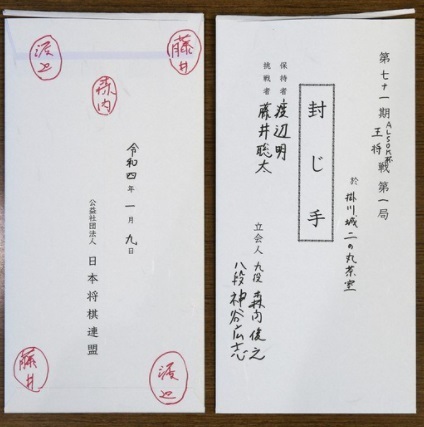 渡辺
藤井
森内
令和四年一月九日
公益社団法人 日本将棋連盟
藤井
渡辺
第七十一期 ALSOK杯王将戦 第一局
於 掛川城二の丸茶室
封じ手
保持者 渡辺明
挑戦者 藤井聡太
立会人 九段 森内俊之
八段 神谷広志